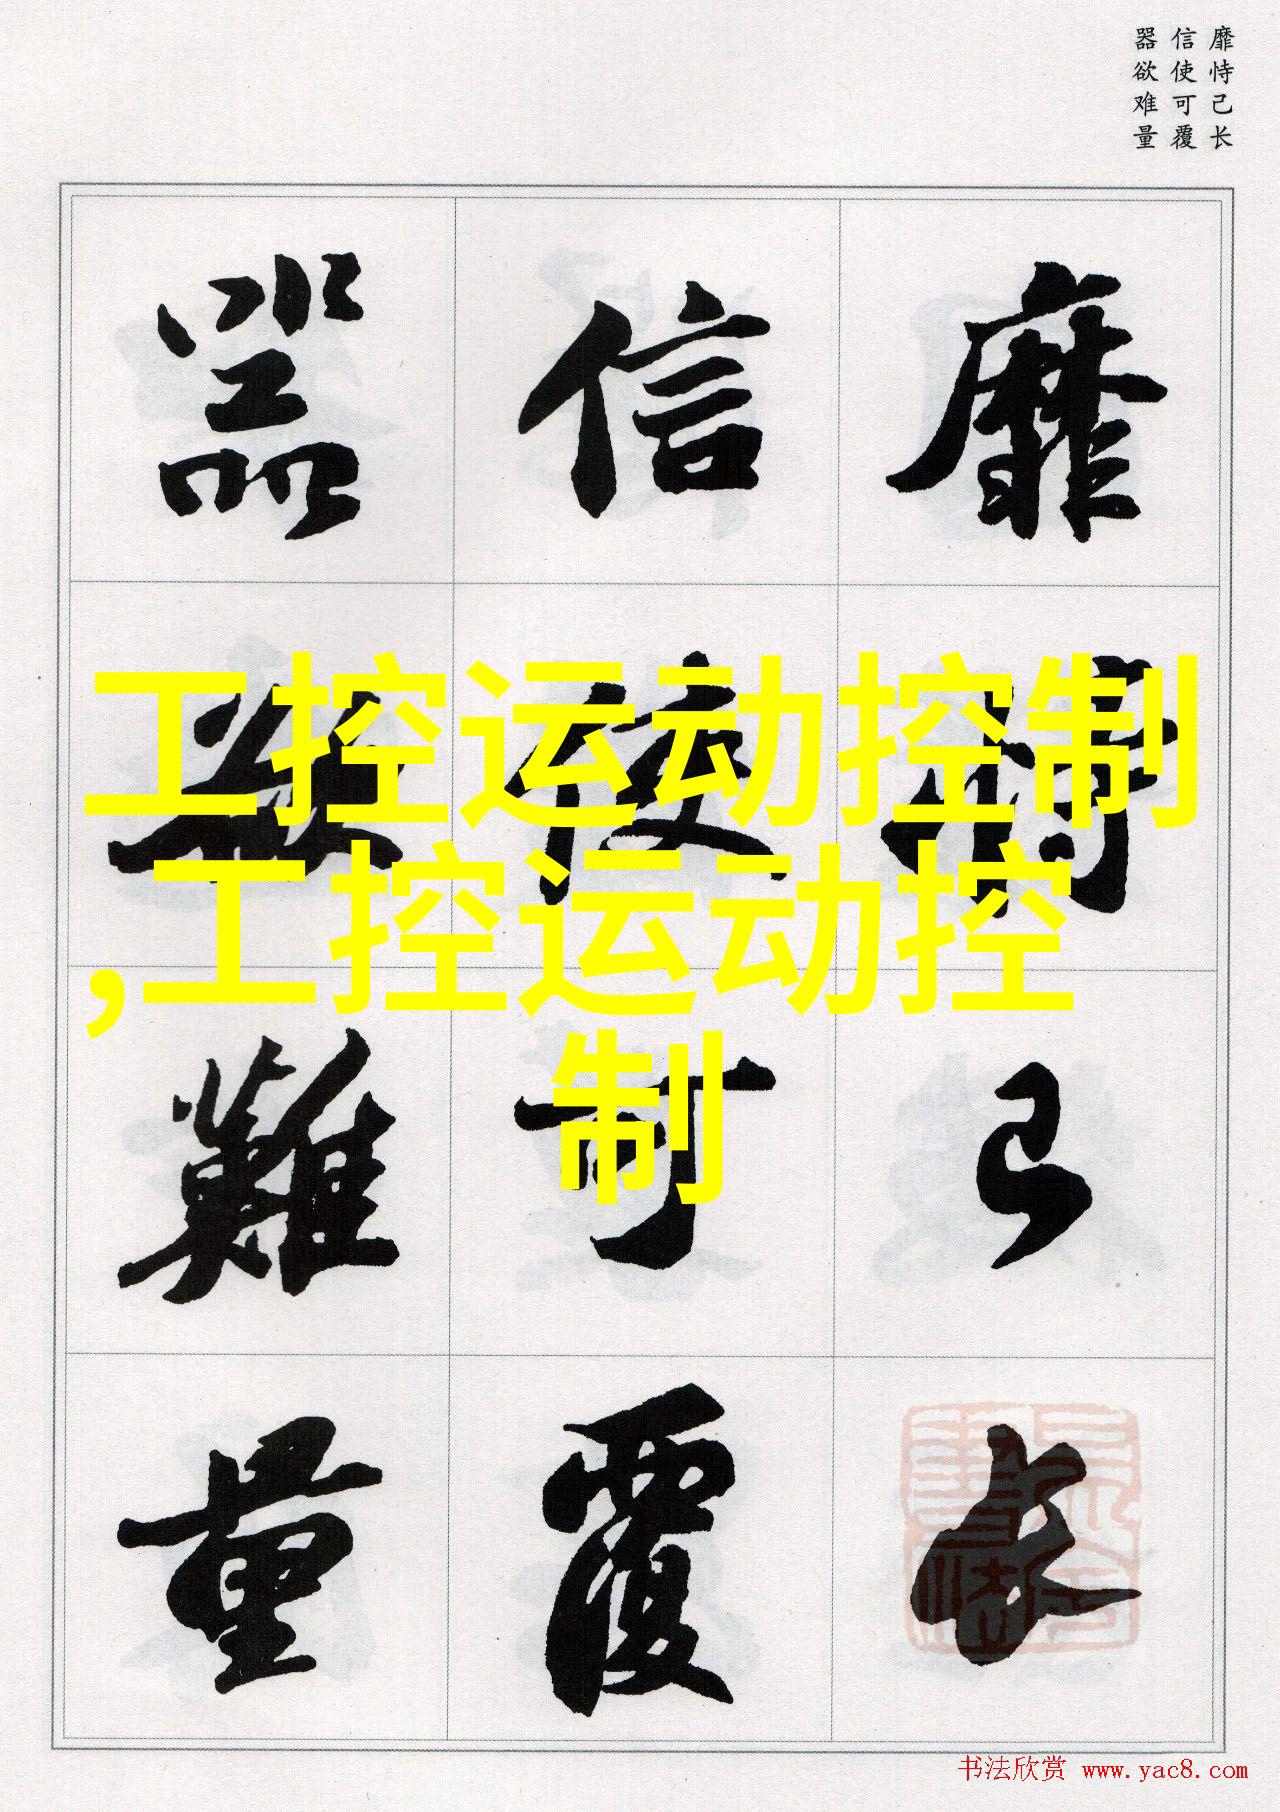 靡恃己长
信使可覆
器欲难量
靡恃己長
信使可覆
器欲難量
工控运动控制
,工控运动控
制
书法欣赏 www.yac8.com